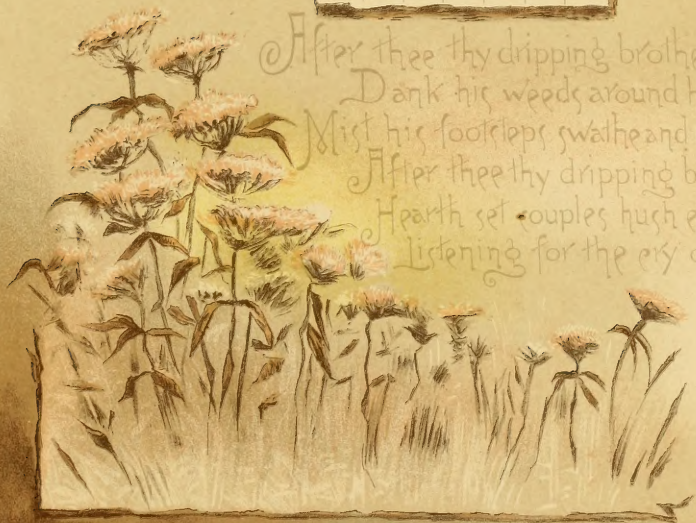 After thee thy dripping brothe
Dank his weeds around h
Mist his footsteps swathe and
After thee thy dripping b
Hearth set couples hush
Listening for the cry